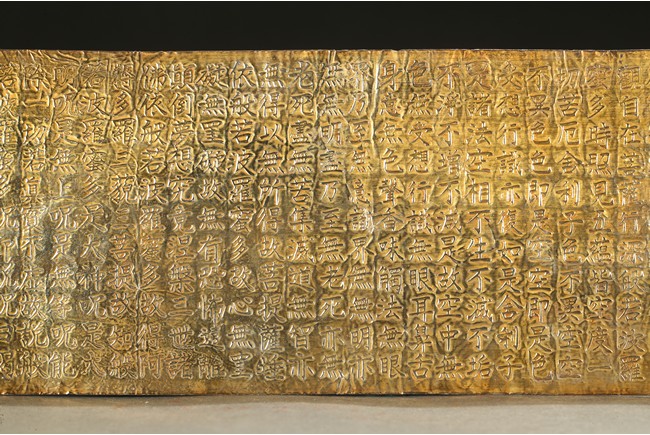 觀自在菩薩行深般若波羅
蜜多時照見五蘊皆空度一
切苦厄舍利子色不異空空
不異色色即是空空即是色
受想行識亦復如是舍利子
是諸法空相不生不滅不垢
不淨不增不減是故空中無
色無受想行識無眼耳鼻舌
身意無色聲香味觸法無眼
界乃至無意識界無無明亦
無無明盡乃至無老死亦無
老死盡無苦集滅道無智亦
無得以無所得故菩提薩埵
依般若波羅蜜多故心無罣
礙無罣礙故無有恐怖遠離
顛倒夢想究竟涅槃三世諸
佛依般若波羅蜜多故得阿
耨多羅三藐三菩提故知般
若波羅蜜多是大神咒是大
明咒是無上咒是無等咒能
除一切苦真實不虛故說般